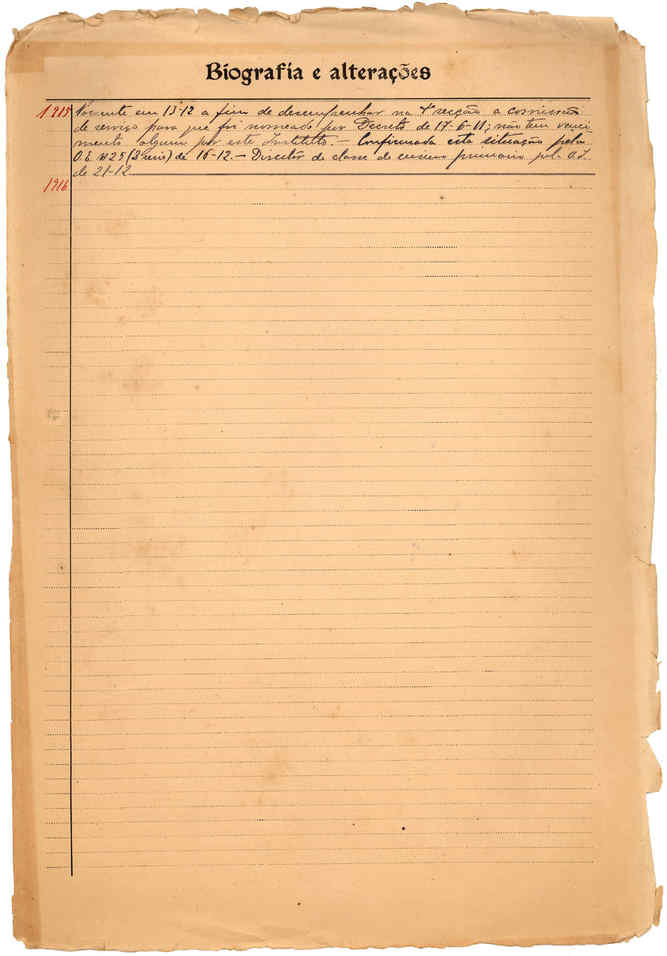 Biografia e alterações
1915 Presente em 13-12 a fim de desempenhar na 4ª secção a comissão
de serviço para que foi nomeado por Decreto de 17-6-11; não tem venci
mento algum por este Instituto. — Confirmada esta situação pela
O.E. nº 25 (2ª serie) de 16-12. — Director de classe do curso primario pela O.I.
de 21-12
1916